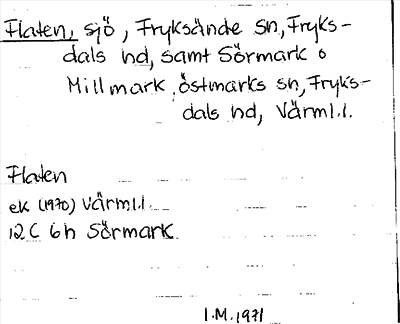 Flaten, sjö, Fryksände sn, Fryks-
dals hd, samt Sörmark o
Millmark, östmarks sn, Fryks-
dals hd, Värml.l.
Flaten
ek (1970) Värml.l.
12C 6h Sörmark
I.M. 1971